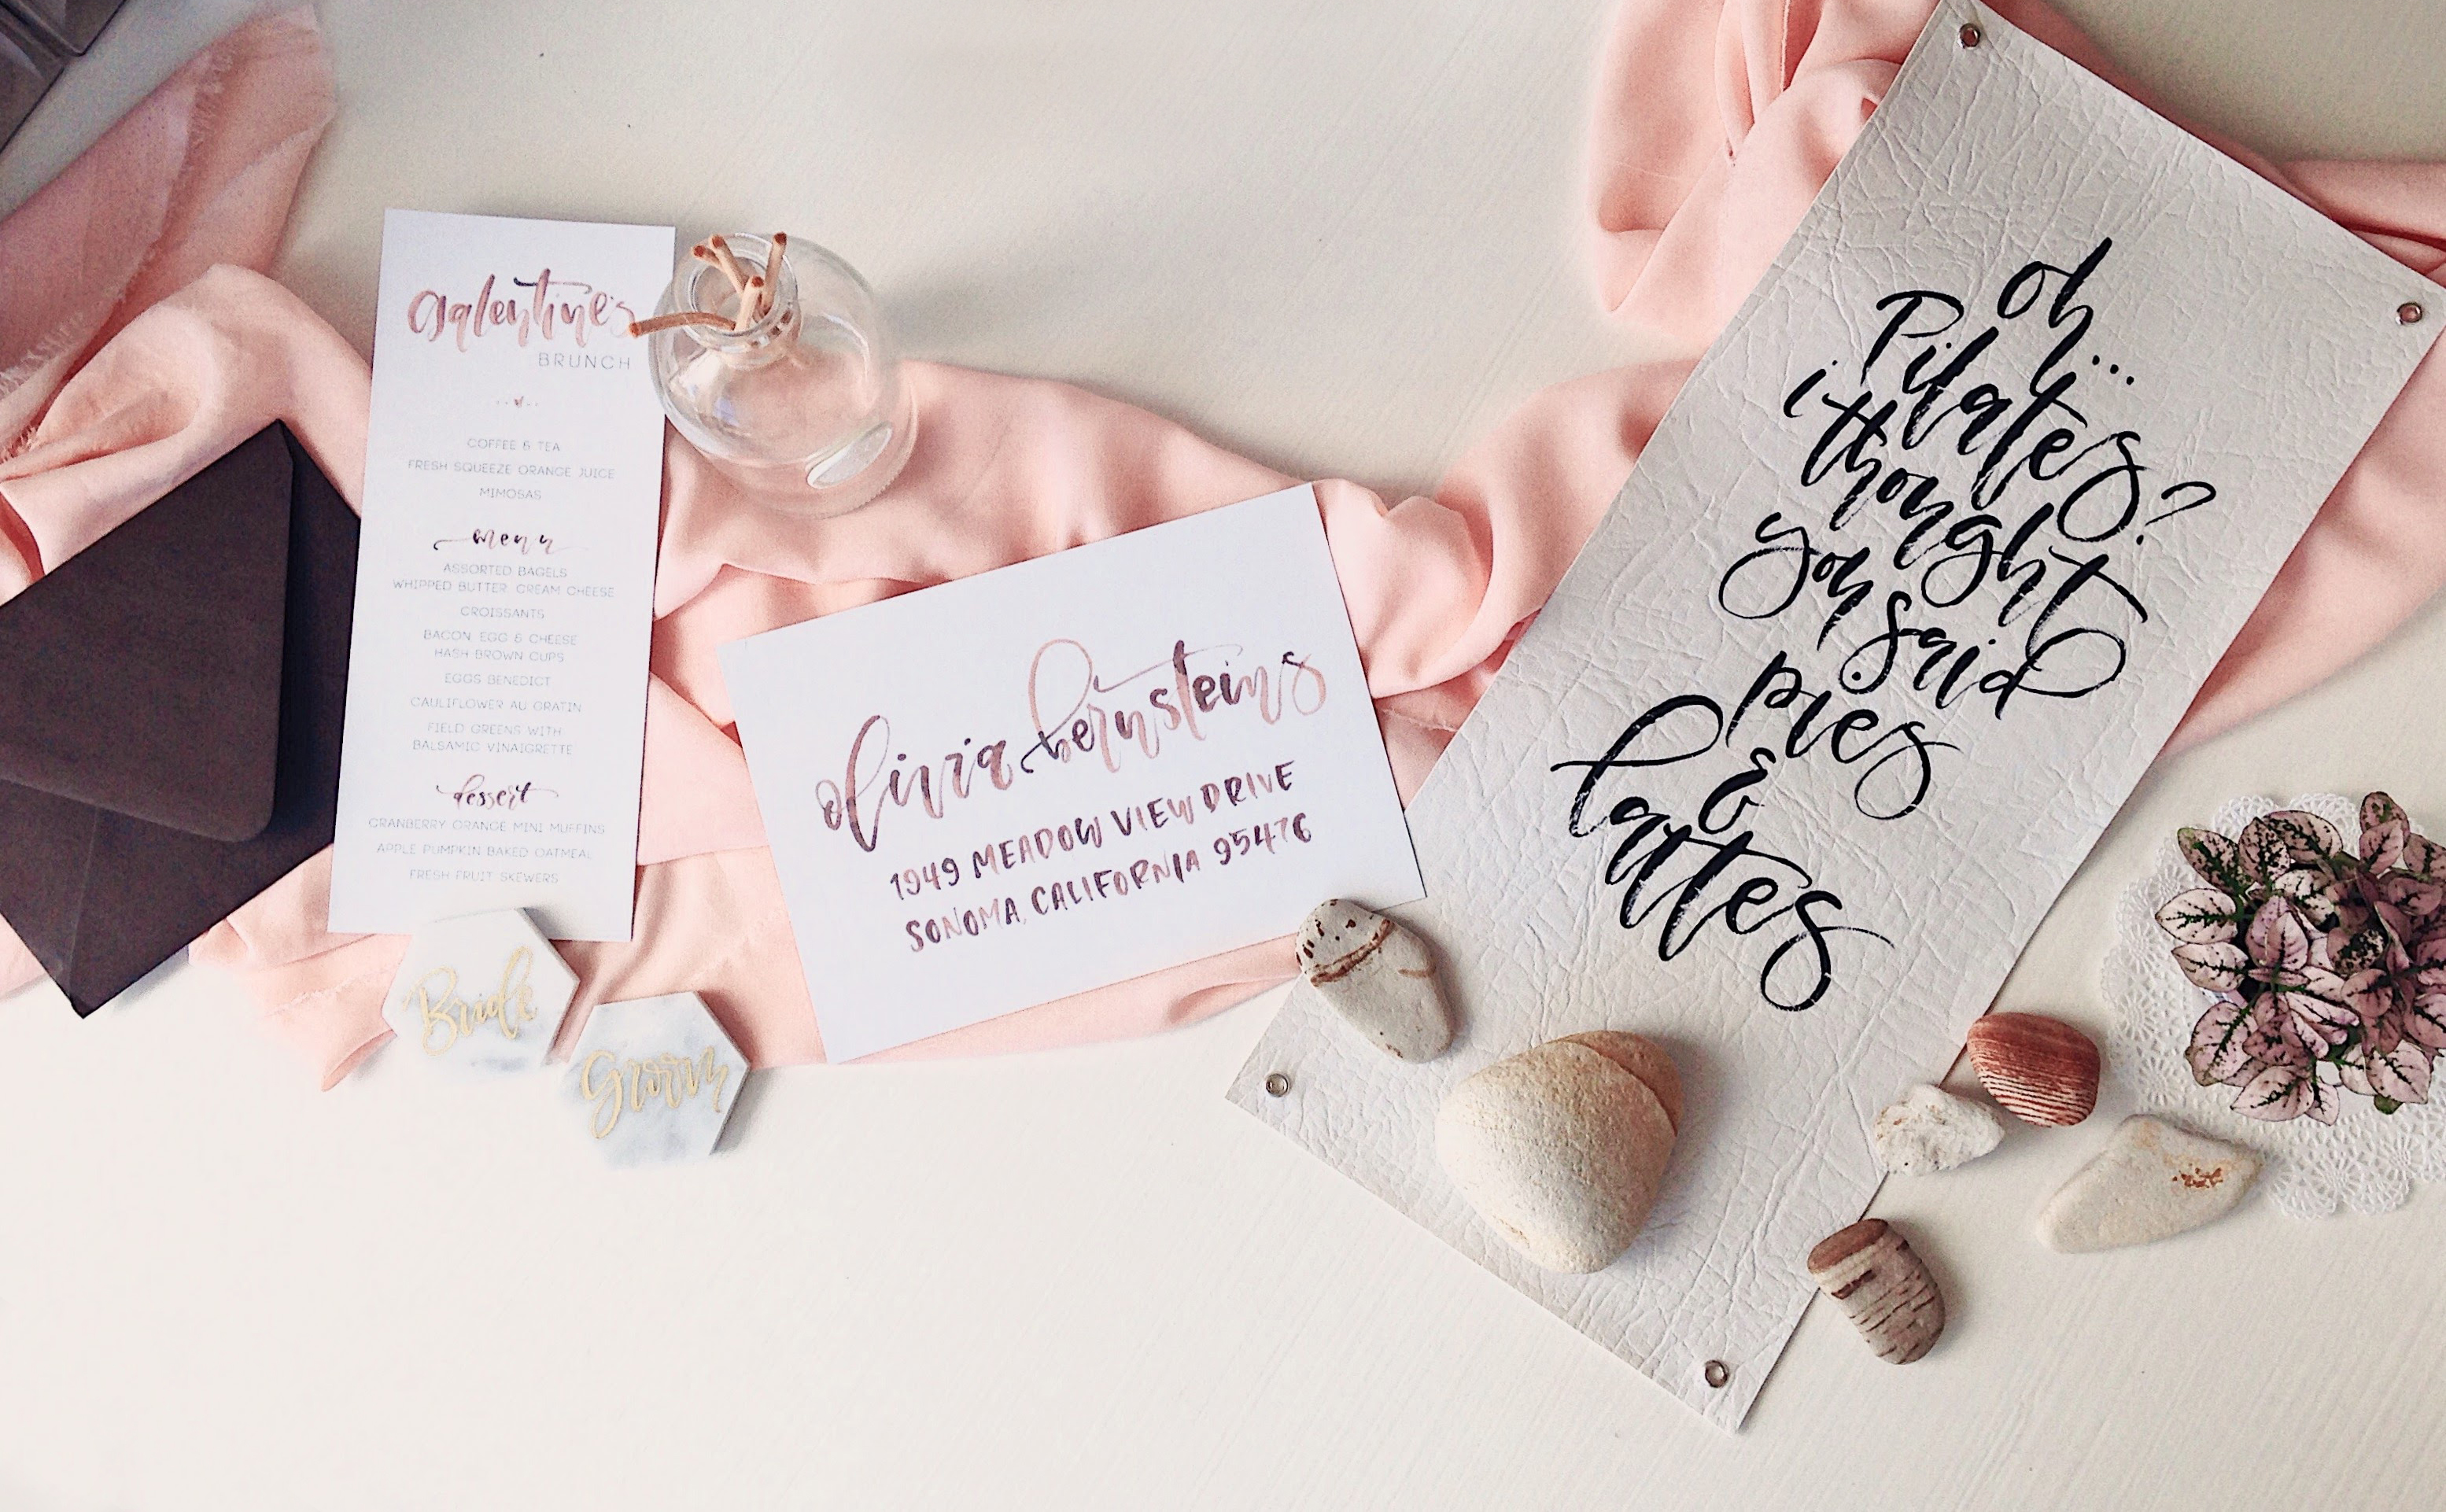 galentine's
BRUNCH
COFFEE & TEA
FRESH SQUEEZE ORANGE JUICE
MIMOSAS
menu
ASSORTED BAGELS
WHIPPED BUTTER, CREAM CHEESE
CROISSANTS
BACON, EGG & CHEESE
HASH BROWN CUPS
EGGS BENEDICT
CAULIFLOWER AU GRATIN
FIELD GREENS WITH
BALSAMIC VINAIGRETTE
dessert
CRANBERRY ORANGE MINI MUFFINS
APPLE PUMPKIN BAKED OATMEAL
FRESH FRUIT SKEWERS
Bride
Groom
olivia bernsteins
1949 MEADOW VIEW DRIVE
SONOMA, CALIFORNIA 95476
oh...
Pilates?
i thought
you said
pies
&
lattes